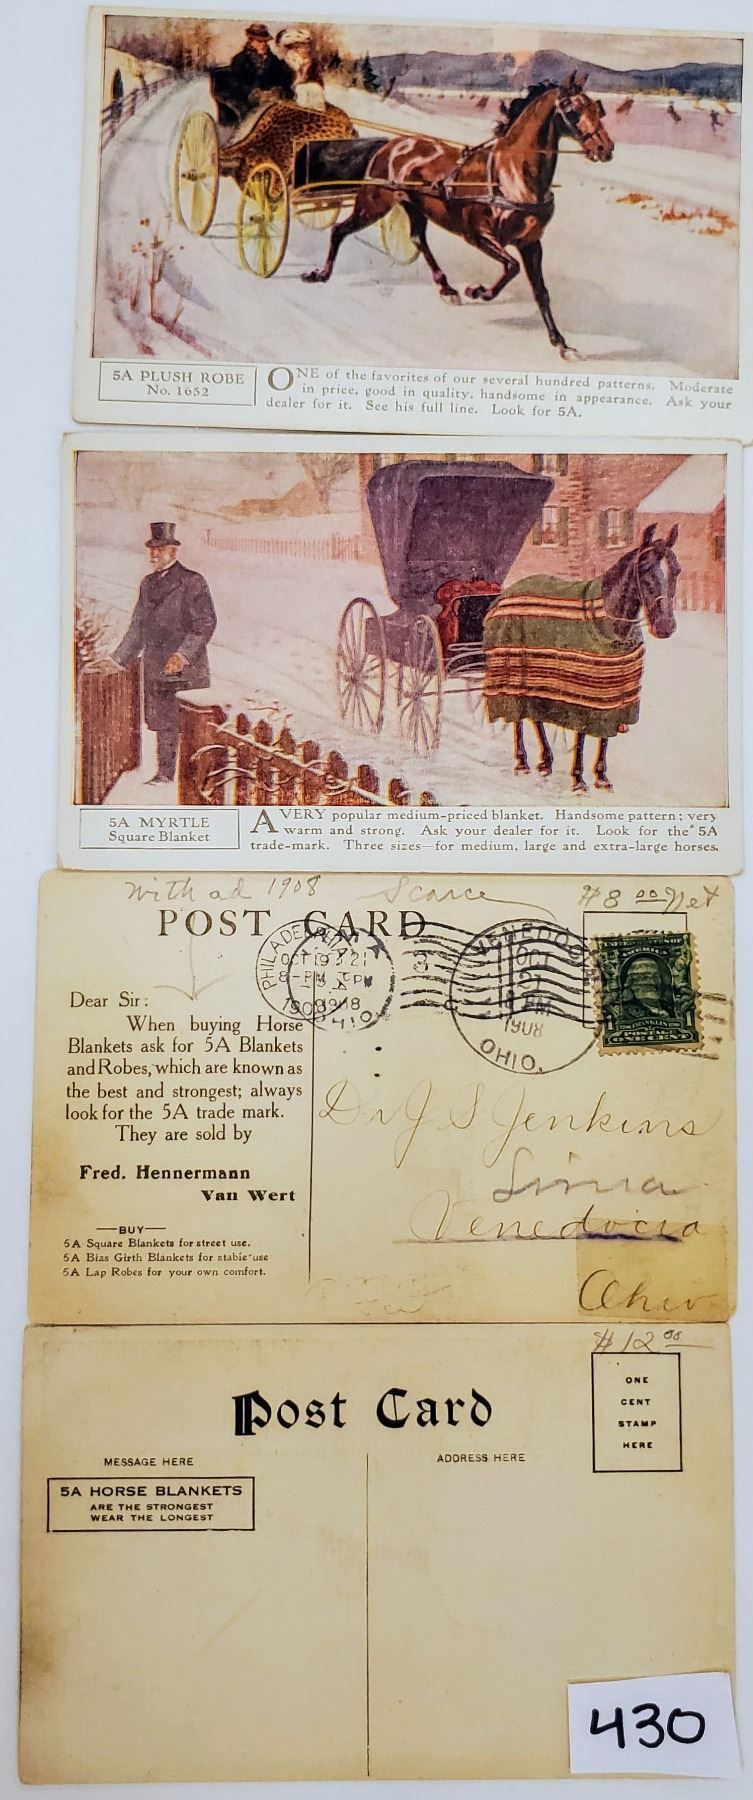 5A PLUSH ROBE
No. 1652
ONE of the favorites of our several hundred patterns. Moderate
in price, good in quality, handsome in appearance. Ask your
dealer for it. See his full line. Look for 5A.
5A MYRTLE
Square Blanket
A VERY popular medium-priced blanket. Handsome pattern; very
warm and strong. Ask your dealer for it. Look for the 5A
trade-mark. Three sizes—for medium, large and extra-large horses.
With ad 1908 Scarce $8.00 Net
POST CARD
PHILADELPHIA
OCT 19
8-PM
1908
OHIO
VENEDOCIA
OCT
21
PM
1908
OHIO.
FRANKLIN
ONE CENT
Dear Sir:
When buying Horse
Blankets ask for 5A Blankets
and Robes, which are known as
the best and strongest; always
look for the 5A trade mark.
They are sold by
Fred. Hennermann
Van Wert
—BUY—
5A Square Blankets for street use.
5A Bias Girth Blankets for stable use
5A Lap Robes for your own comfort.
Dr J S Jenkins
Lima
Venedocia
Ohio
$12.00
Post Card
ONE
CENT
STAMP
HERE
MESSAGE HERE
ADDRESS HERE
5A HORSE BLANKETS
ARE THE STRONGEST
WEAR THE LONGEST
430